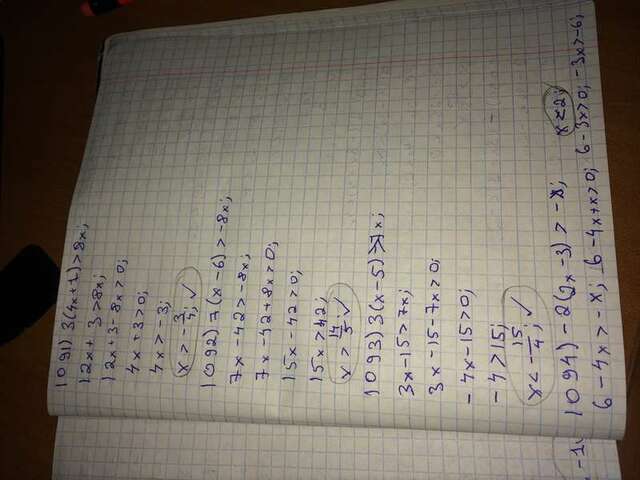 1091) 3(4x+1)>8x;
12x+3>8x;
12x+3-8x>0;
4x+3>0;
4x>-3;
x>-3/4; ✓
1092) 7(x-6)>-8x;
7x-42>-8x;
7x-42+8x>0;
15x-42>0;
15x>42;
x>14/5; ✓
1093) 3(x-5)>7x;
3x-15>7x;
3x-15-7x>0;
-4x-15>0;
-4>15;
x<-15/4; ✓
1094) -2(2x-3)>-x; x<2;
6-4x>-x; 6-4x+x>0; 6-3x>0; -3x>-6;